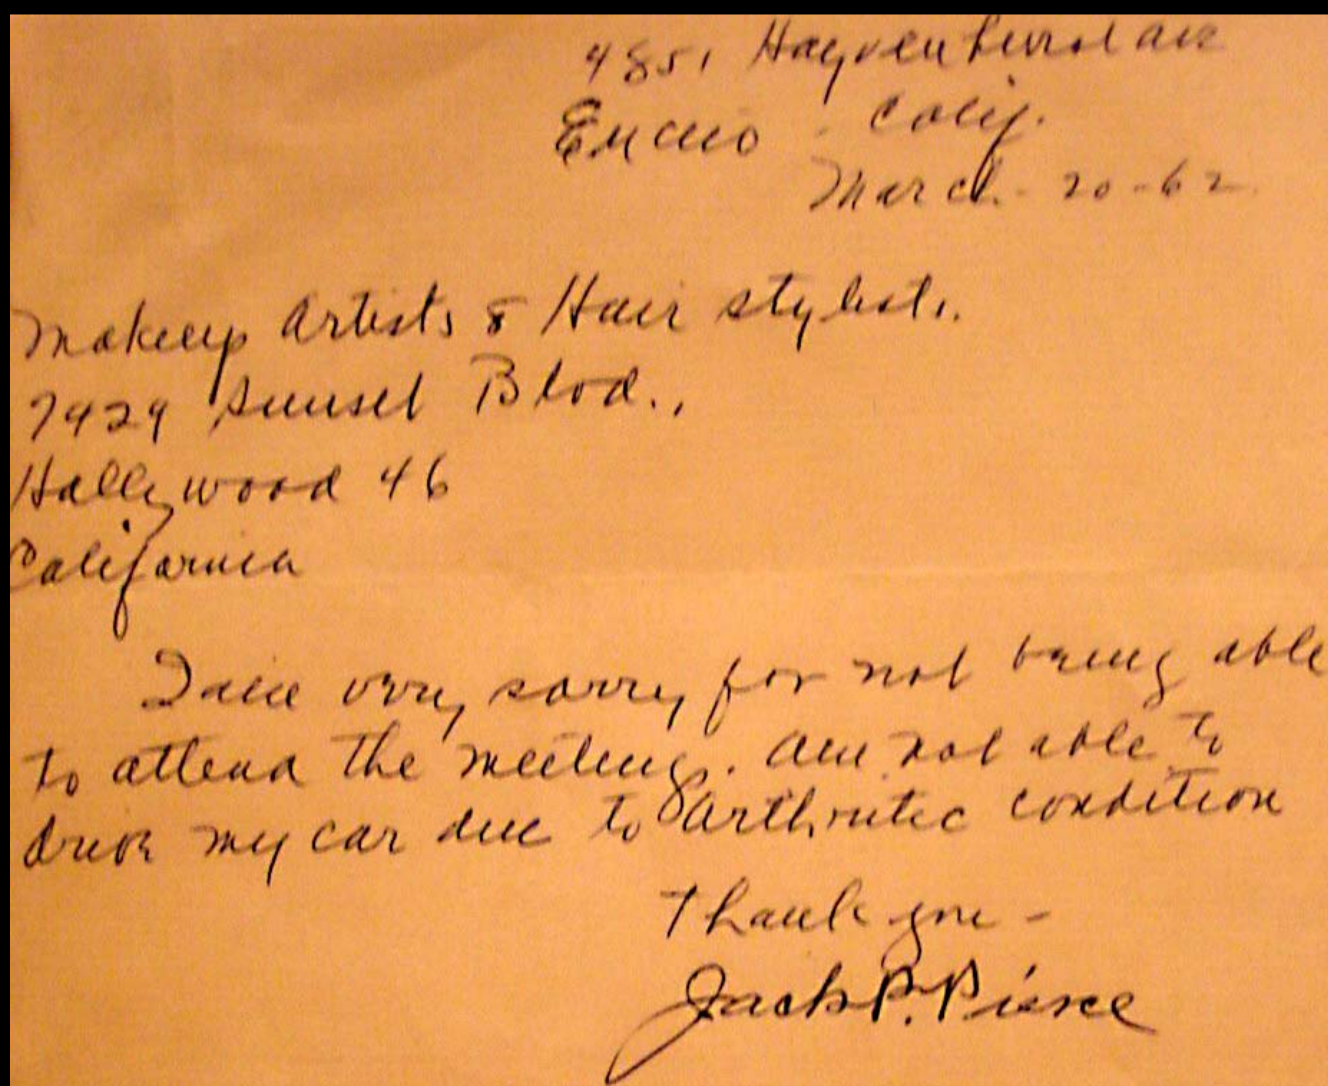 4851 Hayvenhurst ave
Encino - Calif.
March - 20 - 62
Makeup Artists & Hair stylists.
7429 Sunset Blvd.,
Hollywood 46
California
I am very sorry for not being able
to attend the meeting. Am not able to
drive my car due to arthritic condition
Thank you -
Jack P. Pierce